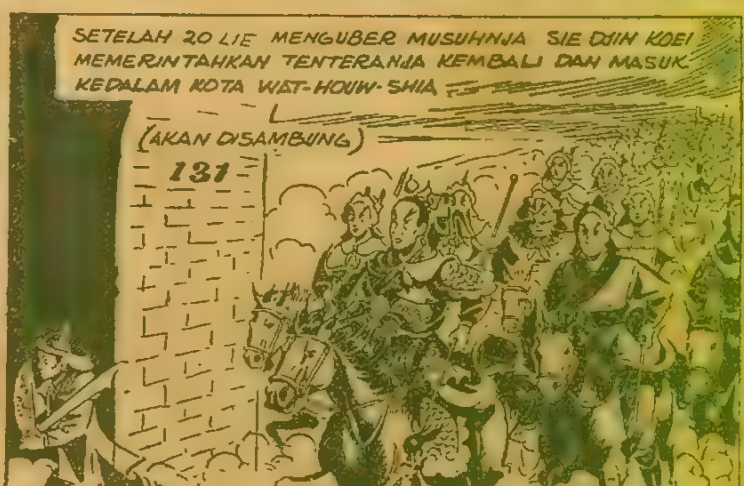 SETELAH 20 LIE MENGUBER MUSUHNJA SIE DJIN KOEI
MEMERINTAHKAN TENTERANJA KEMBALI DAN MASUK
KEDALAM KOTA WAT-HOUW-SHIA
(AKAN DISAMBUNG)
131